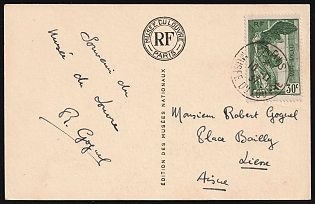 Souvenir du
Musée du Louvre
R. Goguel
MUSÉE DU LOUVRE
RF
PARIS
ÉDITION DES MUSÉES NATIONAUX
RF
30c
Monsieur Robert Goguel
Place Bailly
Aisne